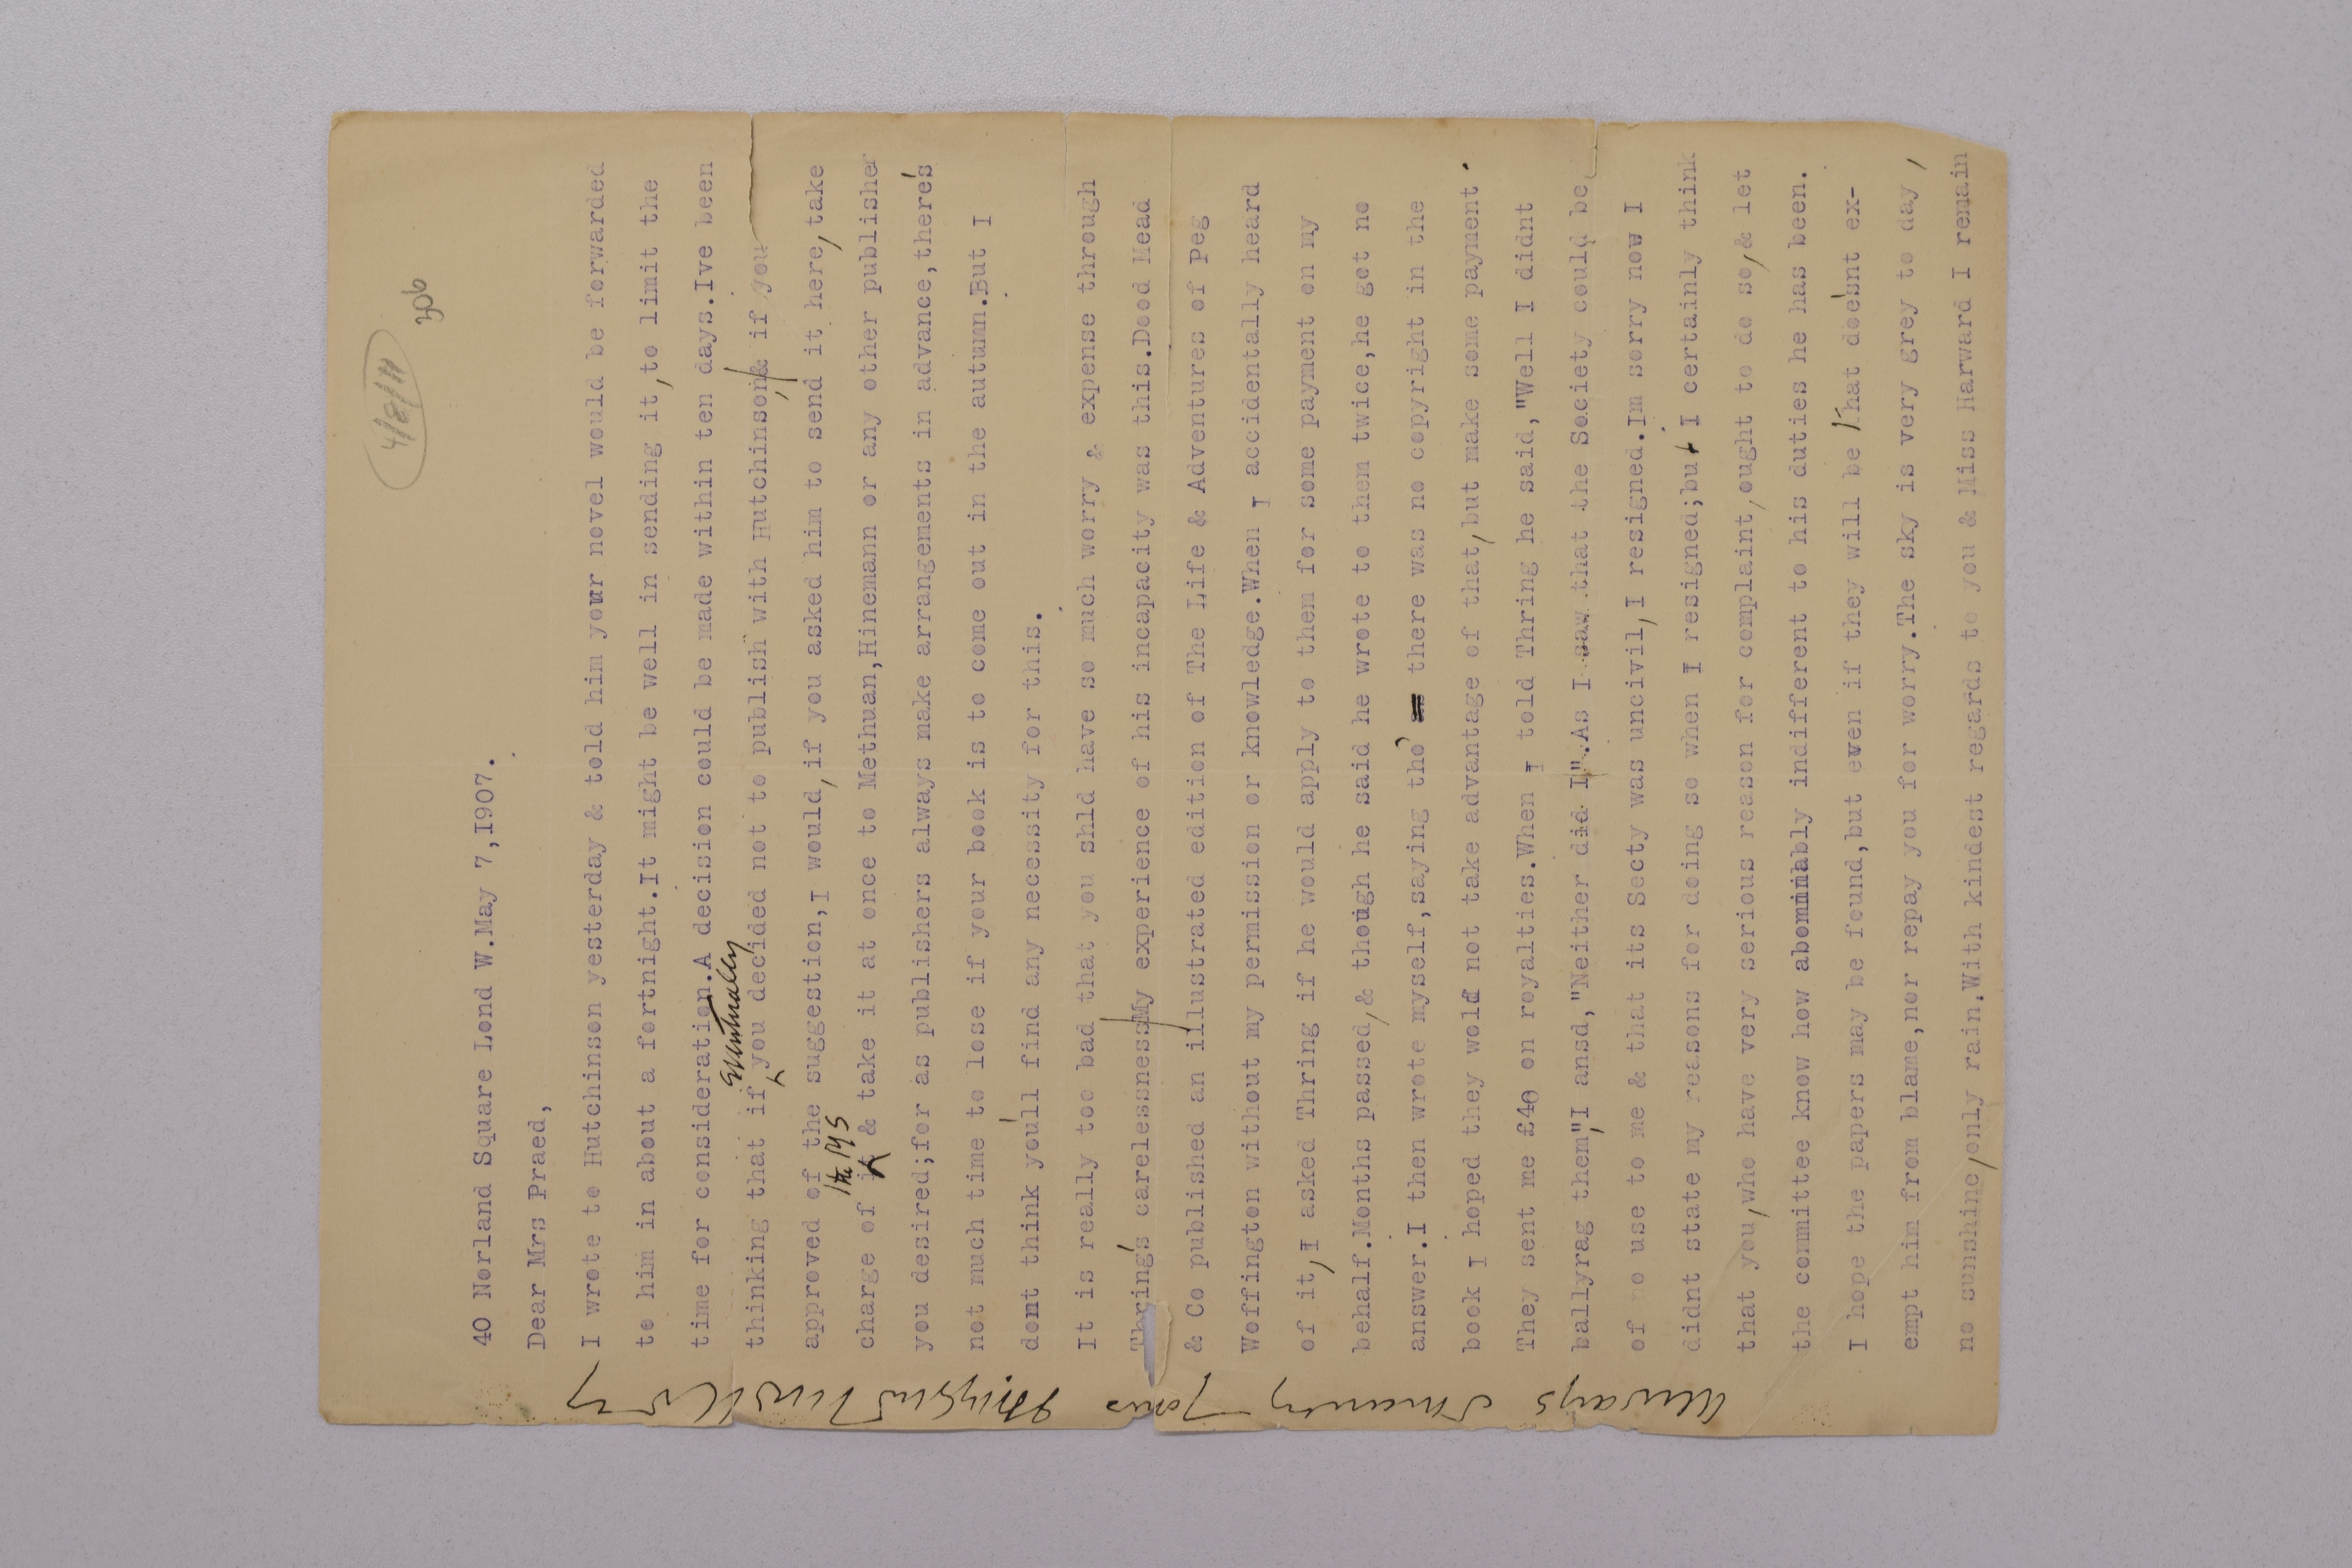 4/8/11
306
40 Norland Square Lond W.May 7,I907.
Dear Mrs Praed,
I wrote to Hutchinson yesterday & told him your novel would be forwarded
to him in about a fortnight.It might be well in sending it,to limit the
time for consideration.A decision could be made within ten days.Ive been
Eventually
thinking that if you decided not to publish with Hutchinson,& if you
approved of the suggestion,I would,if you asked him to send it here,take
the MS
charge of it & take it at once to Methuan,Hinemann or any other publisher
you desired;for as publishers always make arrangements in advance,there's
not much time to lose if your book is to come out in the autumn.But I
dont think you'll find any necessity for this.
It is really too bad that you shld have so much worry & expense through
Thring's carelessness My experience of his incapacity was this.Dood Mead
& Co published an illustrated edition of The Life & Adventures of Peg
Woffington without my permission or knowledge.When I accidentally heard
of it,I asked Thring if he would apply to them for some payment on my
behalf.Months passed,& though he said he wrote to them twice,he got no
answer.I then wrote myself,saying tho' there was no copyright in the
book I hoped they wold not take advantage of that,but make some payment.
They sent me £40 on royalties.When I told Thring he said,"Well I didnt
ballyrag them",I ansd,"Neither did I".As I saw that the Society could be
of no use to me & that its Secty was uncivil,I resigned.Im sorry now I
didnt state my reasons for doing so when I resigned;but I certainly think
that you,who have very serious reason for complaint,ought to do so,& let
the committee know how abominably indifferent to his duties he has been.
I hope the papers may be found,but even if they will be that does'nt ex-
empt him from blame,nor repay you for worry.The sky is very grey to day,
no sunshine,only rain.With kindest regards to you & Miss Harward I remain
Always Sincerely yours